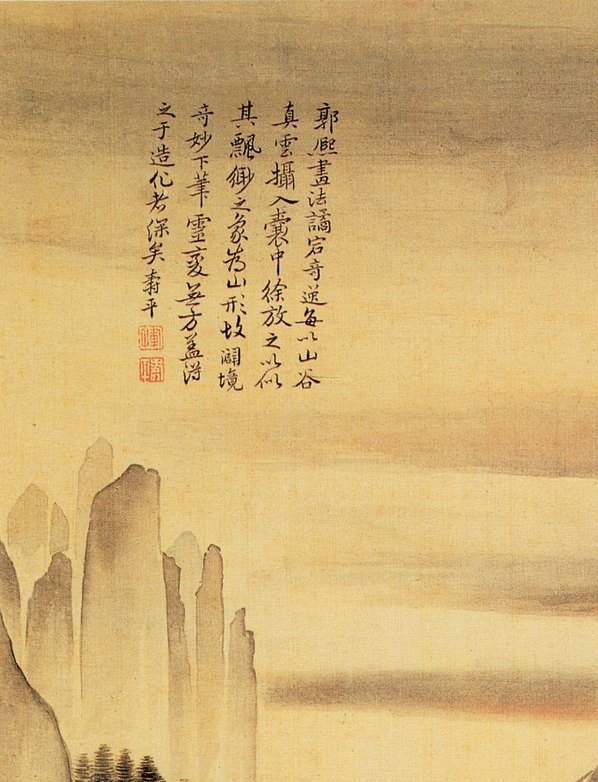 郭熙畫法譎宕奇逸每以山谷
真雲攝入囊中徐放之以似
其飄緲之象為山形故闢境
奇妙下筆靈變無方蓋得
之于造化者深矣壽平
壽平